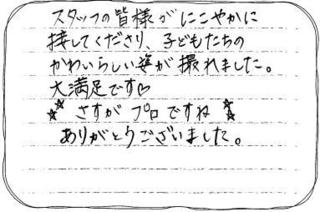 スタッフの皆様がにこやかに
接してくださり、子どもたちの
かわいらしい姿が撮れました。
大満足です♡
☆☆さすがプロですね☆☆
ありがとうございました。